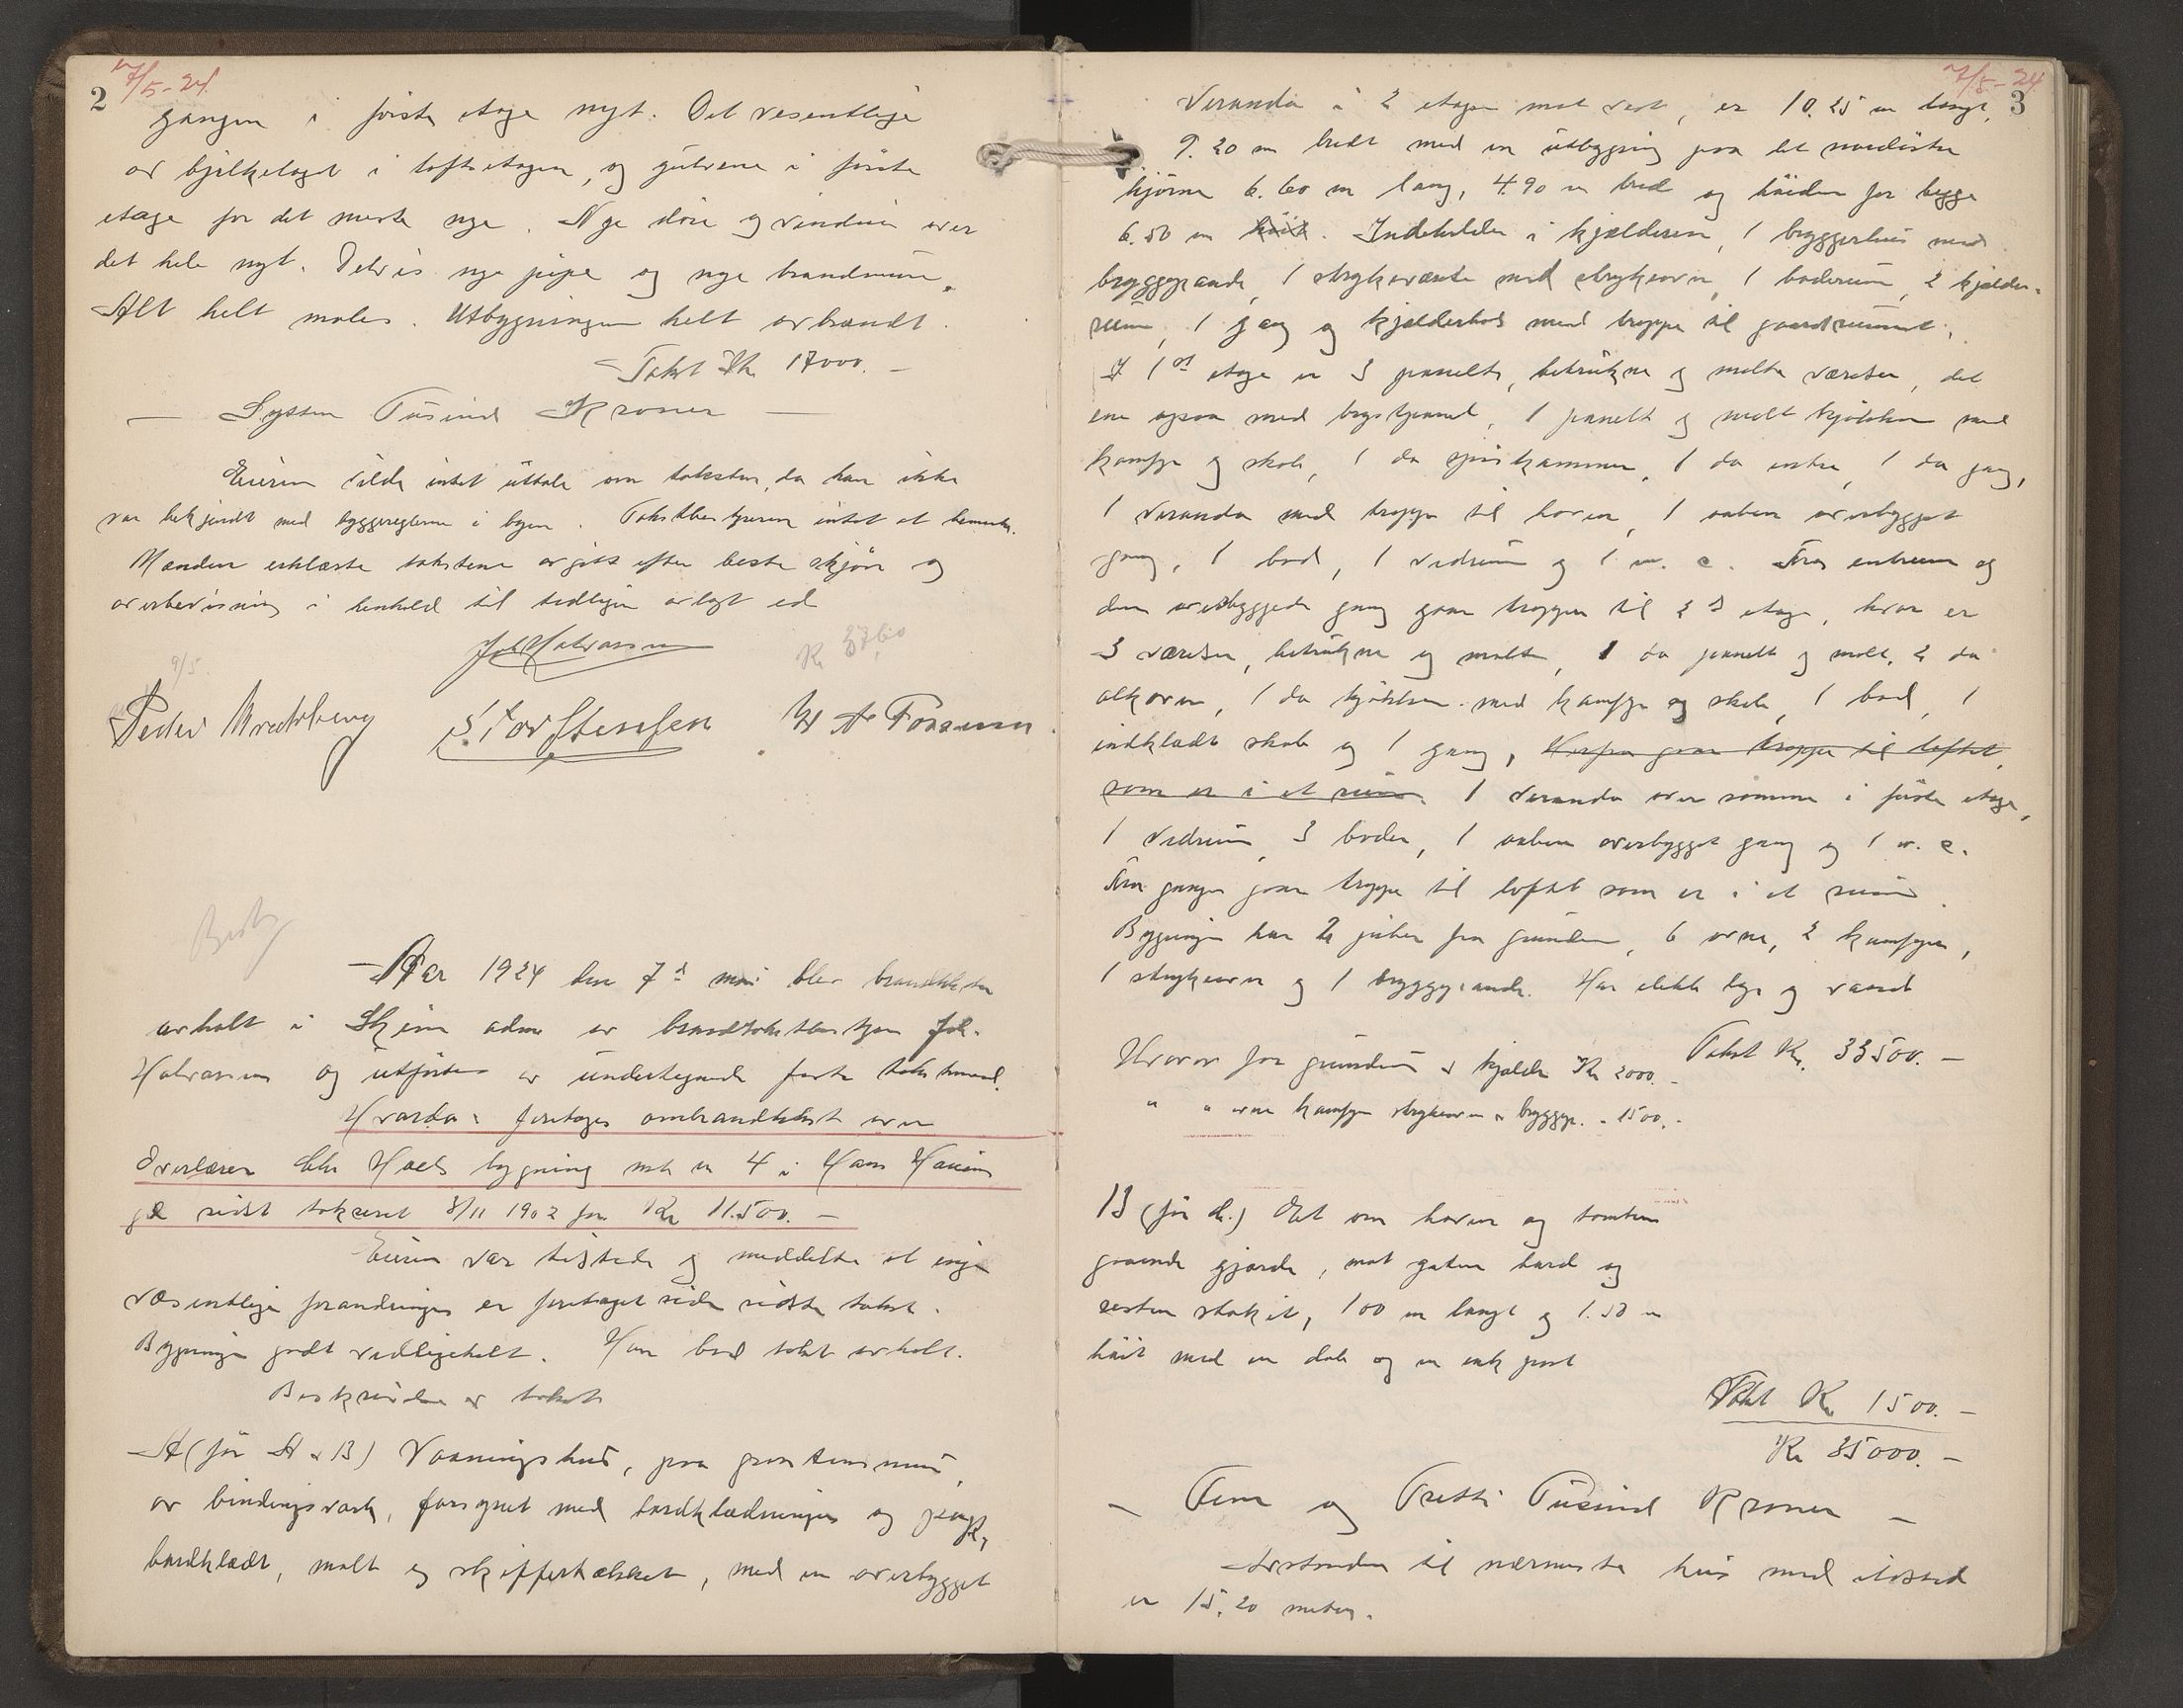 2
7/5-24
gangen i första etage nyt. Det vesentlige
av bjelkelaget i loftsetagen, og gulvene i første
etage for det meste nye. Nye döre og vinduer over
det hele nyt. Delvis nye piper og nye brandmure.
Alt helt males. Utbygningen helt avbrændt.
Takst Kr. 17000.-
— Sytten Tusind Kroner —
Eieren vilde intet uttale om taksten, da han ikke
var bekjendt med byggereglerne i byen. Takstbestyreren intet at bemerke.
Mændene erklærte taksterne avgitt efter beste skjön og
overbevisning i henhold til tidligere avlagt ed
Joh Halvorsen
Kr 37,60
9/5
Peder S. Torstensen
Aar 1924 den 7d mai blev brandtakster
avholdt i Skien adm av brandtakstbestyrer Joh.
Halvorsen og utförtes av undertegnede faste takstmænd.
Hvorda: foretages ombrandtakst over
Overlærer Chr Hoels bygning mtr nr 4 i Hans Houens
gt sidst takseret 8/11 1902 for Kr 11.500.-
Eieren var tilstede og meddelte at ingen
væsentlige forandringer er foretaget siden sidste takst.
Bygningen godt vedlikeholt. Han bad takst avholt.
Beskrivelse og takst
A (för A & B) Vaaningshus, paa graastensmur,
av bindingsverk, forsynet med bordklædninger og
bordklædt, malt og skiffertækket, med en overbygget
7/5-24
3
Veranda i 2 etager mot vest, er 10.25 m langt,
9.20 m bredt med en utbygning paa det nordöstre
hjörne 6.60 m lang, 4.90 m bred og höiden for begge
6.50 m höit. Indeholder i kjælderen, 1 bryggerhus med
bryggepande, 1 strykeværelse med strykeovn, 1 baderum, 2 kjælder-
rum, 1 gang og kjælderbod med trappe til gaardsrummet.
I 1ste etage er 3 panelte, betrukne og malte værelser, det
ene ogsaa med brystpanel, 1 panelt og malt kjökken med
komfyr og skab, 1 do spiskammer, 1 do entre, 1 do gang,
1 veranda med trappe til haven, 1 aaben overbygget
gang, 1 bod, 1 vedrum og 1 w. c. Fra entreen og
den overbyggede gang gaar trapper til 2d etage, hvor er
3 værelser, betrukne og malte, 1 do panelt og malt, 2 do
alkover, 1 do kjökken med komfyr og skab, 1 bod, 1
indklædt skab og 1 gang, herfra gaar trappe til loftet,
som er i et rum. 1 veranda over samme i förste etage,
1 vedrum, 3 boder, 1 aaben overbygget gang og 1 w. c.
Fra gangen gaar trappe til loftet som er i et rum.
Bygningen har 2 piber fra grunden, 6 ovne, 2 komfyrer,
1 strykeovn og 1 bryggepande. Har elektr lys og vand
Takst Kr. 33500.-
Hvorav for grundmur & kjælder Kr 2000.-
" " ovne komfyr strykeovn & bryggep. - 1500.-
B (för d.) Et om haven og tomten
gaaende gjærde, mot gaten bord og
resten stakit, 100 m langt og 1.50 m
höit med en dob og en enk port
Takst Kr 1500.-
Kr 35000.-
— Fem og Tretti Tusind Kroner —
Avstanden til nærmeste hus med ildsted
er 15.20 meter.